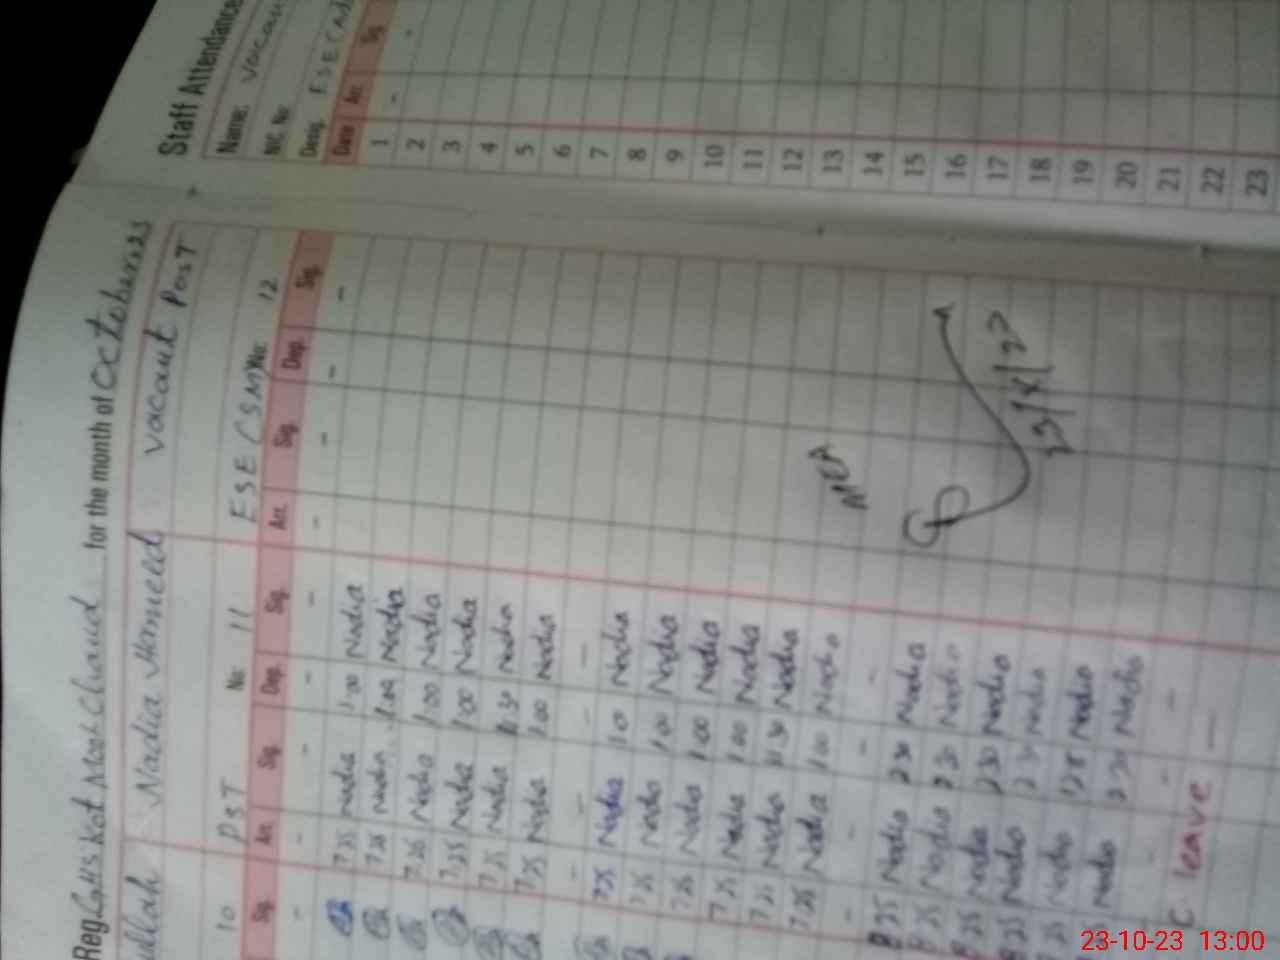 for the month of October 23
Nadia Hameed
Vacant Post
PST No: 11
ESE (SM) No: 12
10
Sig. Arr. Sig. Dep. Sig. Arr. Sig. Dep. Sig.
- - - - - - - - -
7.25 Nadia 1.00 Nadia
7.25 Nadia 1.00 Nadia
7.25 Nadia 1.00 Nadia
7.25 Nadia 1.00 Nadia
7.25 Nadia 11.30 Nadia
7.25 Nadia 1.00 Nadia
- - - -
7.25 Nadia 1.0 Nadia
7.25 Nadia 1.00 Nadia
7.25 Nadia 1.00 Nadia
7.25 Nadia 1.00 Nadia
7.25 Nadia 11.30 Nadia
7.25 Nadia 1.00 Nadia
- - - -
8.25 Nadia 2.30 Nadia
8.25 Nadia 2.30 Nadia
8.25 Nadia 2.30 Nadia
8.25 Nadia 2.30 Nadia
Nadia Nadia
Nadia 2.30 Nadia
- - - -
C. leave - -
MEA
Staff Attendance
Name: Vacant
NIC. No:
Desig. ESE
Date Arr. Sig.
1 - -
2
3
4
5
6
7
8
9
10
11
12
13
14
15
16
17
18
19
20
21
22
23
23-10-23 13:00